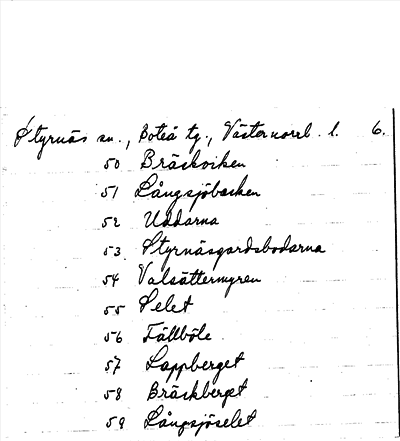 Styrnäs sn., Boteå tg., Västernorrl. l. 6.
50 Bräckviken
51 Långsjöbacken
52 Uddarna
53 Styrnäsgårdsbodarna
54 Valsättermyren
55 Selet
56 Fällböle
57 Lappberget
58 Bräckberget
59 Långsjöselet